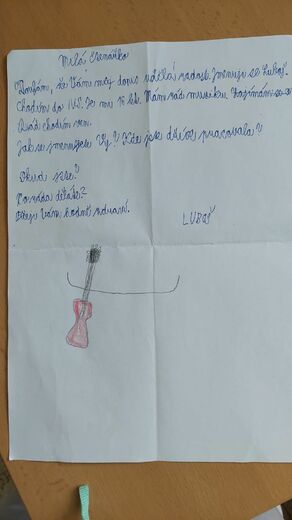 Milá čtenářko
Doufám, že Vám můj dopis udělá radost. Jmenuji se Luboš.
Chodím do IV. Je mi 16 let. Mám rád muziku. Zajímám se o
Rád chodím ven.
Jak se jmenujete Vy? Kde jste dříve pracovala?
Okud jste?
Co ráda děláte?
Přeji Vám hodně zdraví.
LUBOŠ